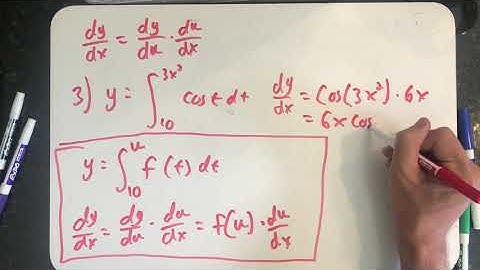 dy/dx = dy/du · du/dx
3) y = ∫₁₀^(3x²) cos t dt
dy/dx = cos(3x²) · 6x
= 6x cos
y = ∫₁₀^u f(t) dt
dy/dx = dy/du · du/dx = f(u) · du/dx
EXPO